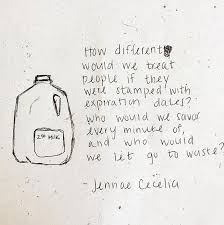 How different
would we treat
people if they
were stamped with
expiration dates?
who would we savor
every minute of,
and who would
we let go to waste?
- Jennae Cecelia
2% MILK